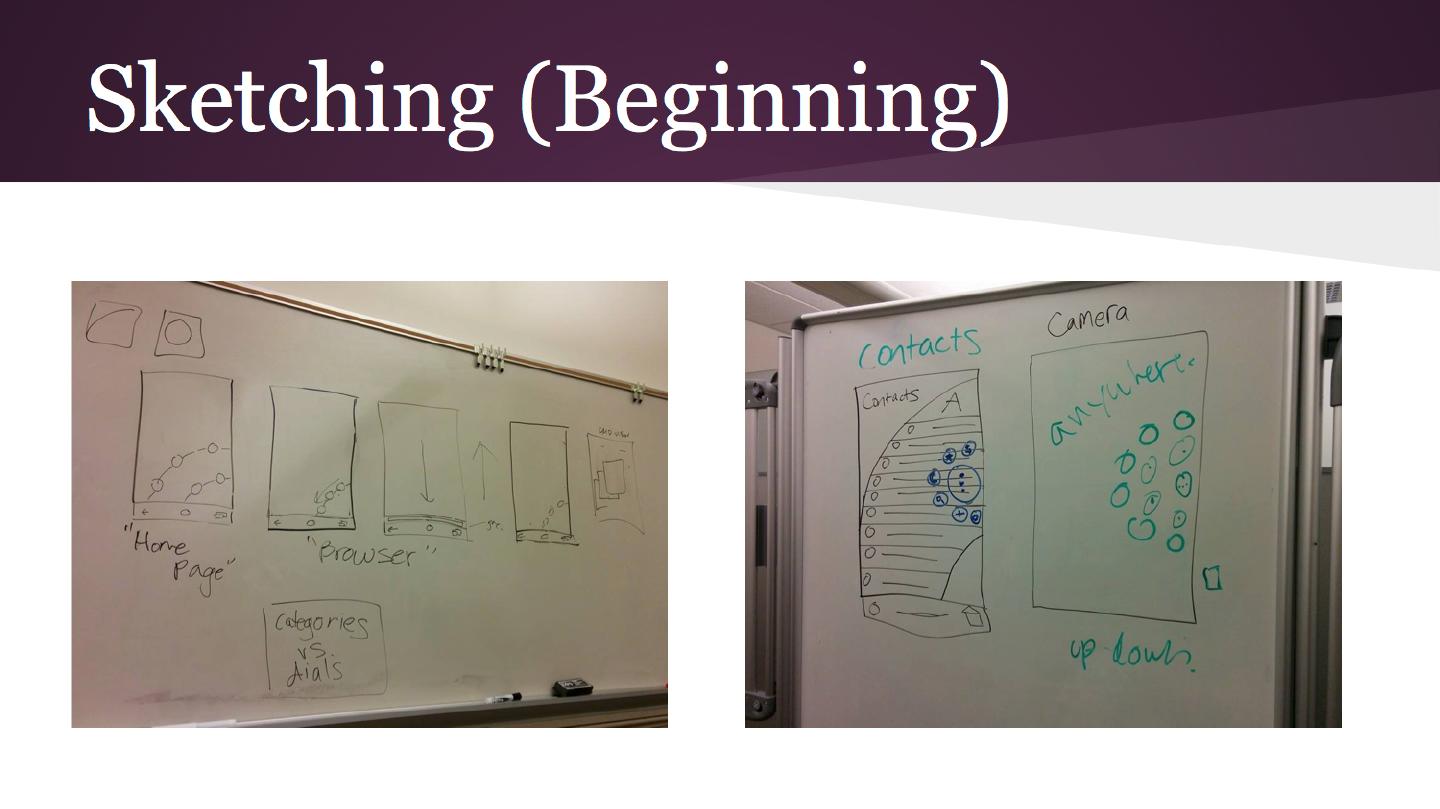 Sketching (Beginning)
"Home
Page"
"Browser"
Categories
vs.
dials
Contacts
Camera
Contacts
A
anywhere.
up down.